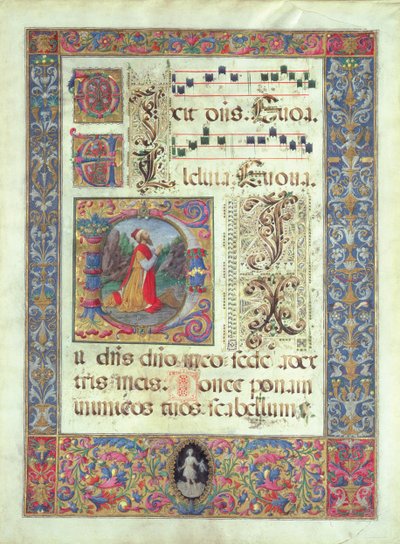 DIxit dñs. Euoua.
ALleluia. Euoua.
DI
X
it dñs dño meo: sede a dex
tris meis. Donec ponam
inimicos tuos: scabellum